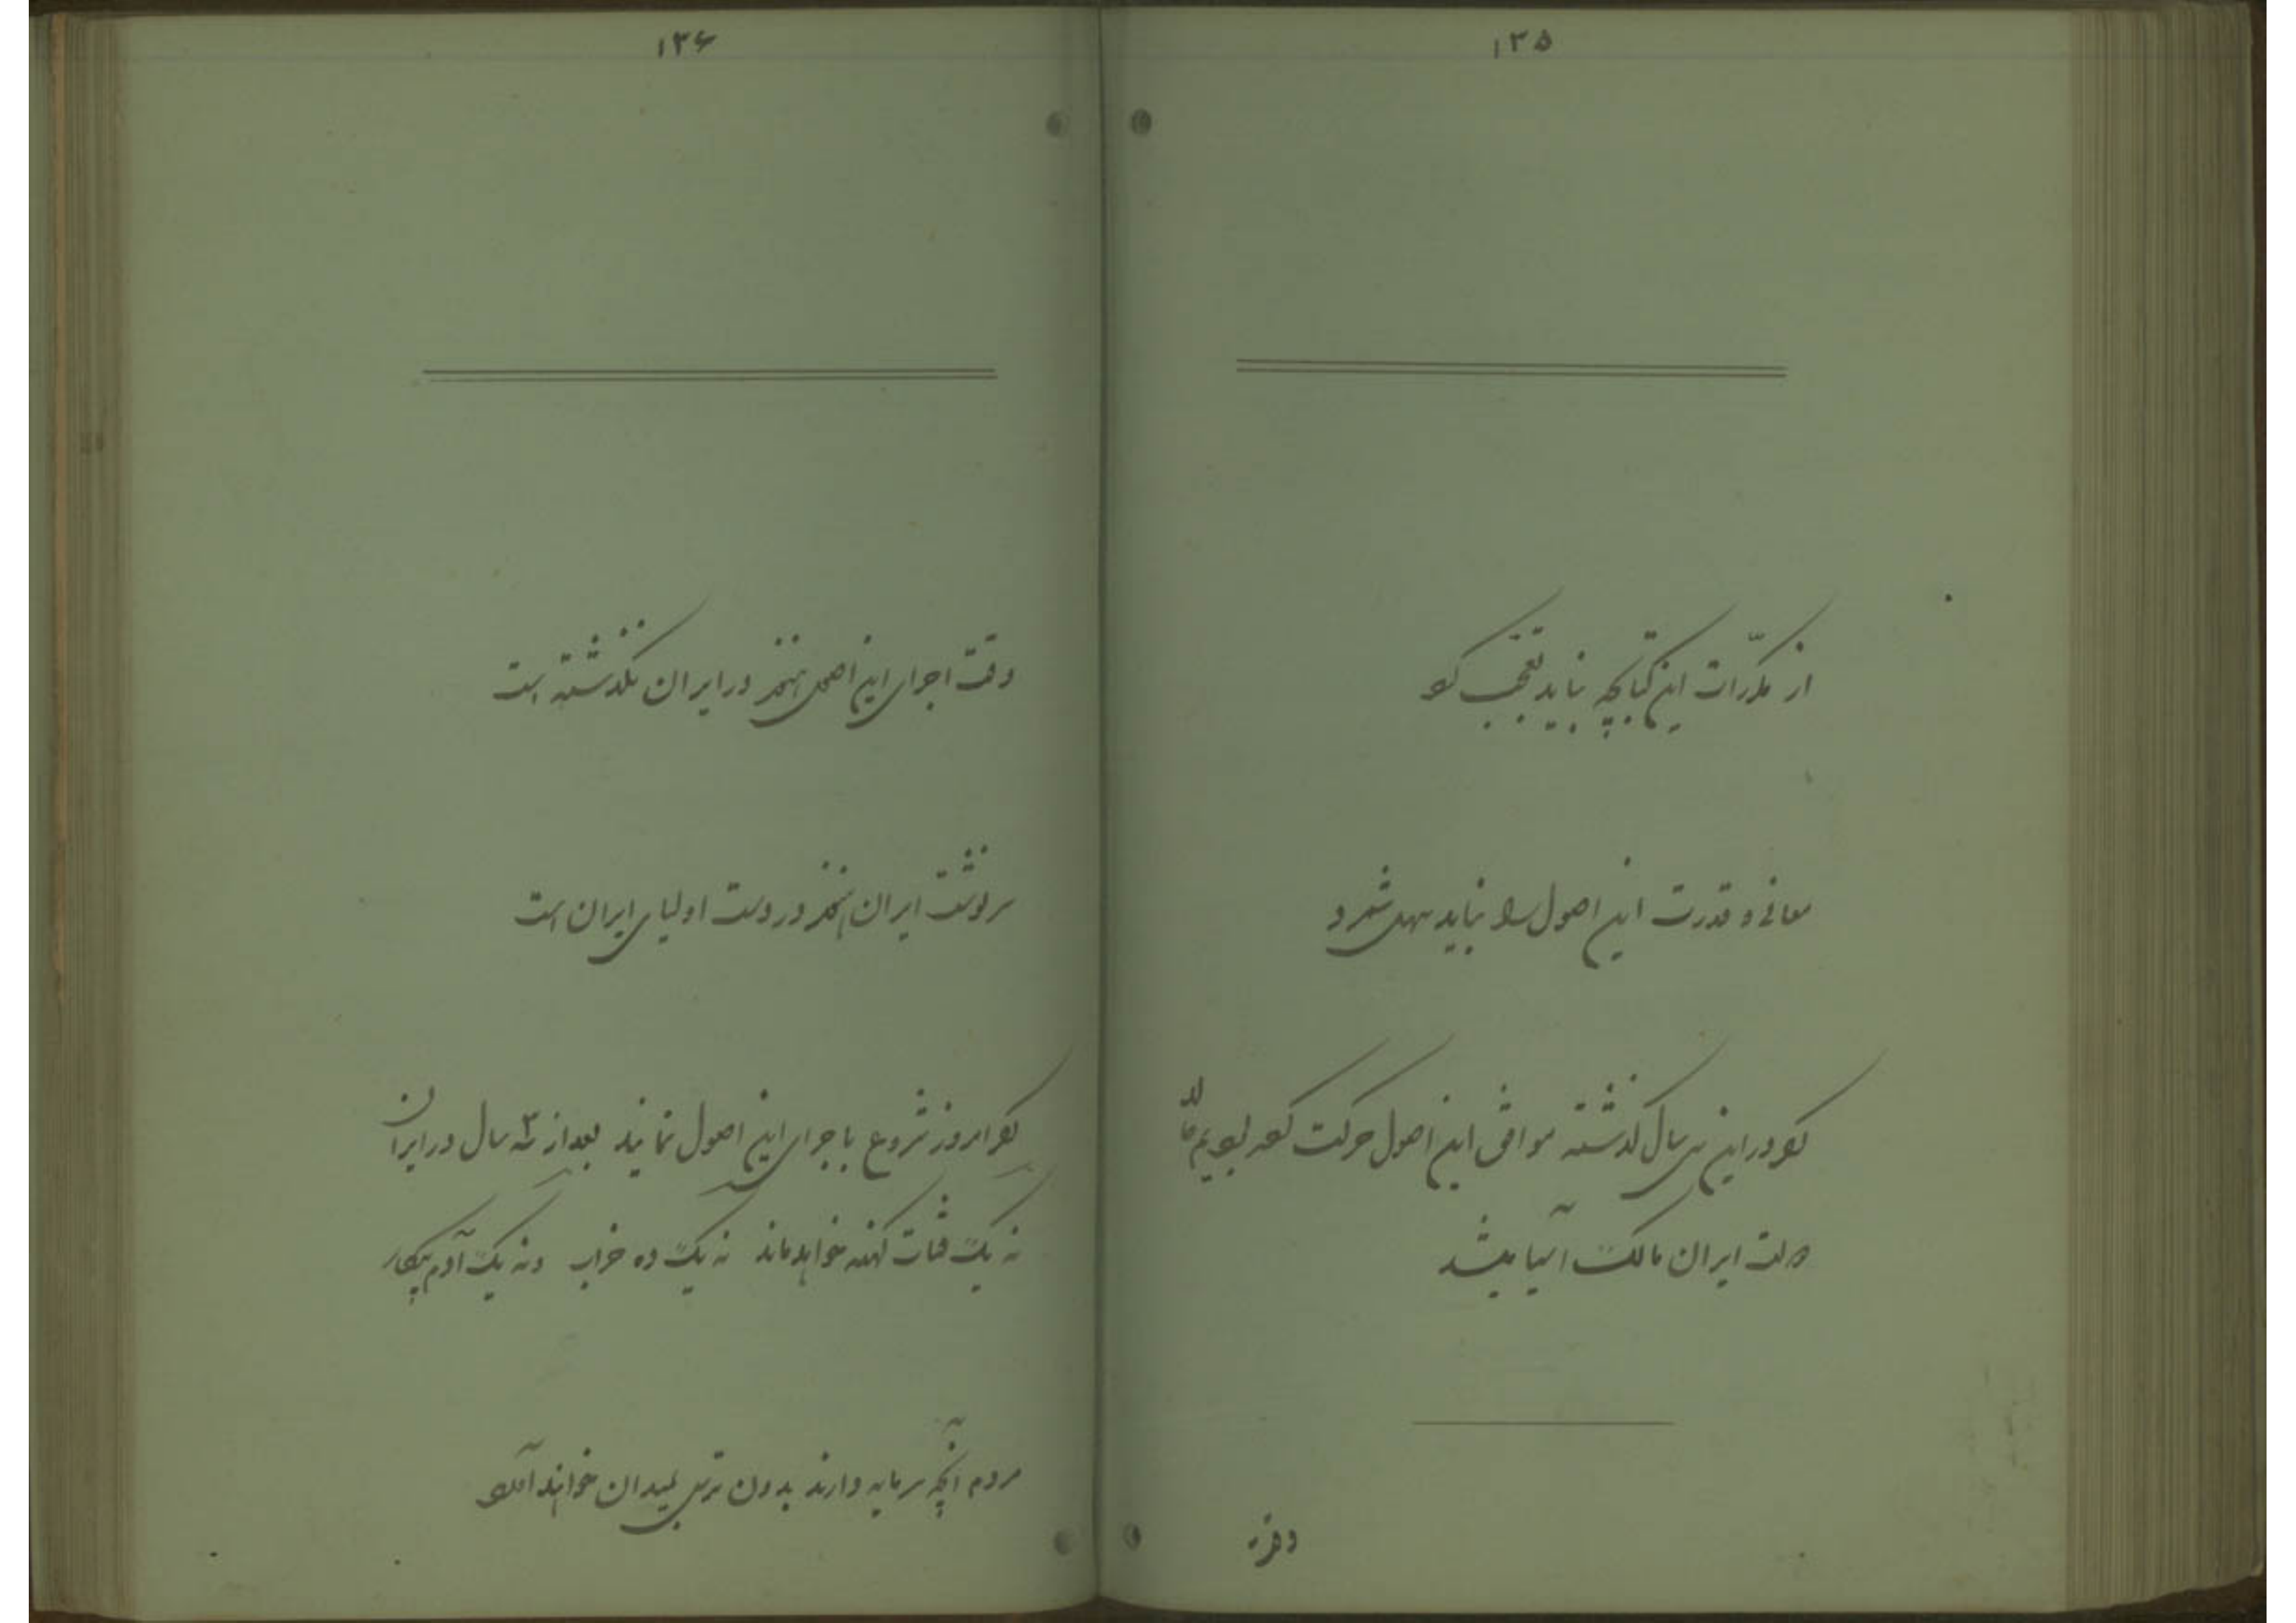 ۱۳۵
از مکررات این کتابچه نباید تعجب کرد
معانی و قدرت این اصول را نباید سهل شمرد
اگر در این سی سال گذشته موافق این اصول حرکت کرده بودیم حالا
دولت ایران مالک آسیا میشد
۱۳۶
وقت اجرای این اصول هنوز در ایران نگذشته است
سرنوشت ایران هنوز در دست اولیای ایران است
اگر امروز شروع باجرای این اصول نمایند بعد از سه سال در ایران
نه یک قنات کهنه خواهد ماند نه یک ده خراب و نه یک آدم بیکار
مردم آنچه سرمایه دارند بدون ترس بمیدان خواهند آورد